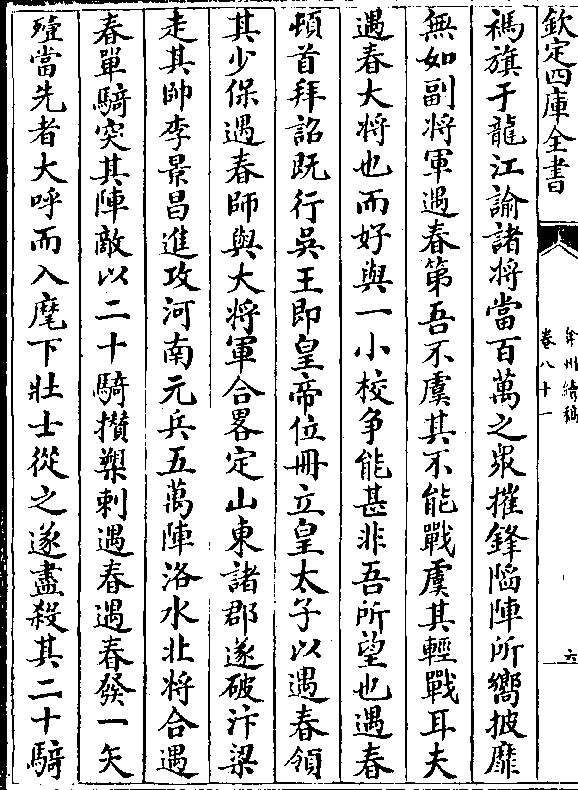 欽定四庫全書
弇州續稿
卷八十一
六
禡旗于龍江諭諸将當百萬之眾摧鋒陷陣所嚮披靡
無如副将軍遇春第吾不虞其不能戰虞其輕戰耳夫
遇春大将也而好與一小校争能甚非吾所望也遇春
頓首拜詔既行吳王即皇帝位冊立皇太子以遇春領
其少保遇春師與大将軍合畧定山東諸郡遂破汴梁
走其帥李景昌進攻河南元兵五萬陣洛水北将合遇
春單騎突其陣敵以二十騎攢槊刺遇春遇春發一矢
殪當先者大呼而入麾下壯士從之遂盡殺其二十騎